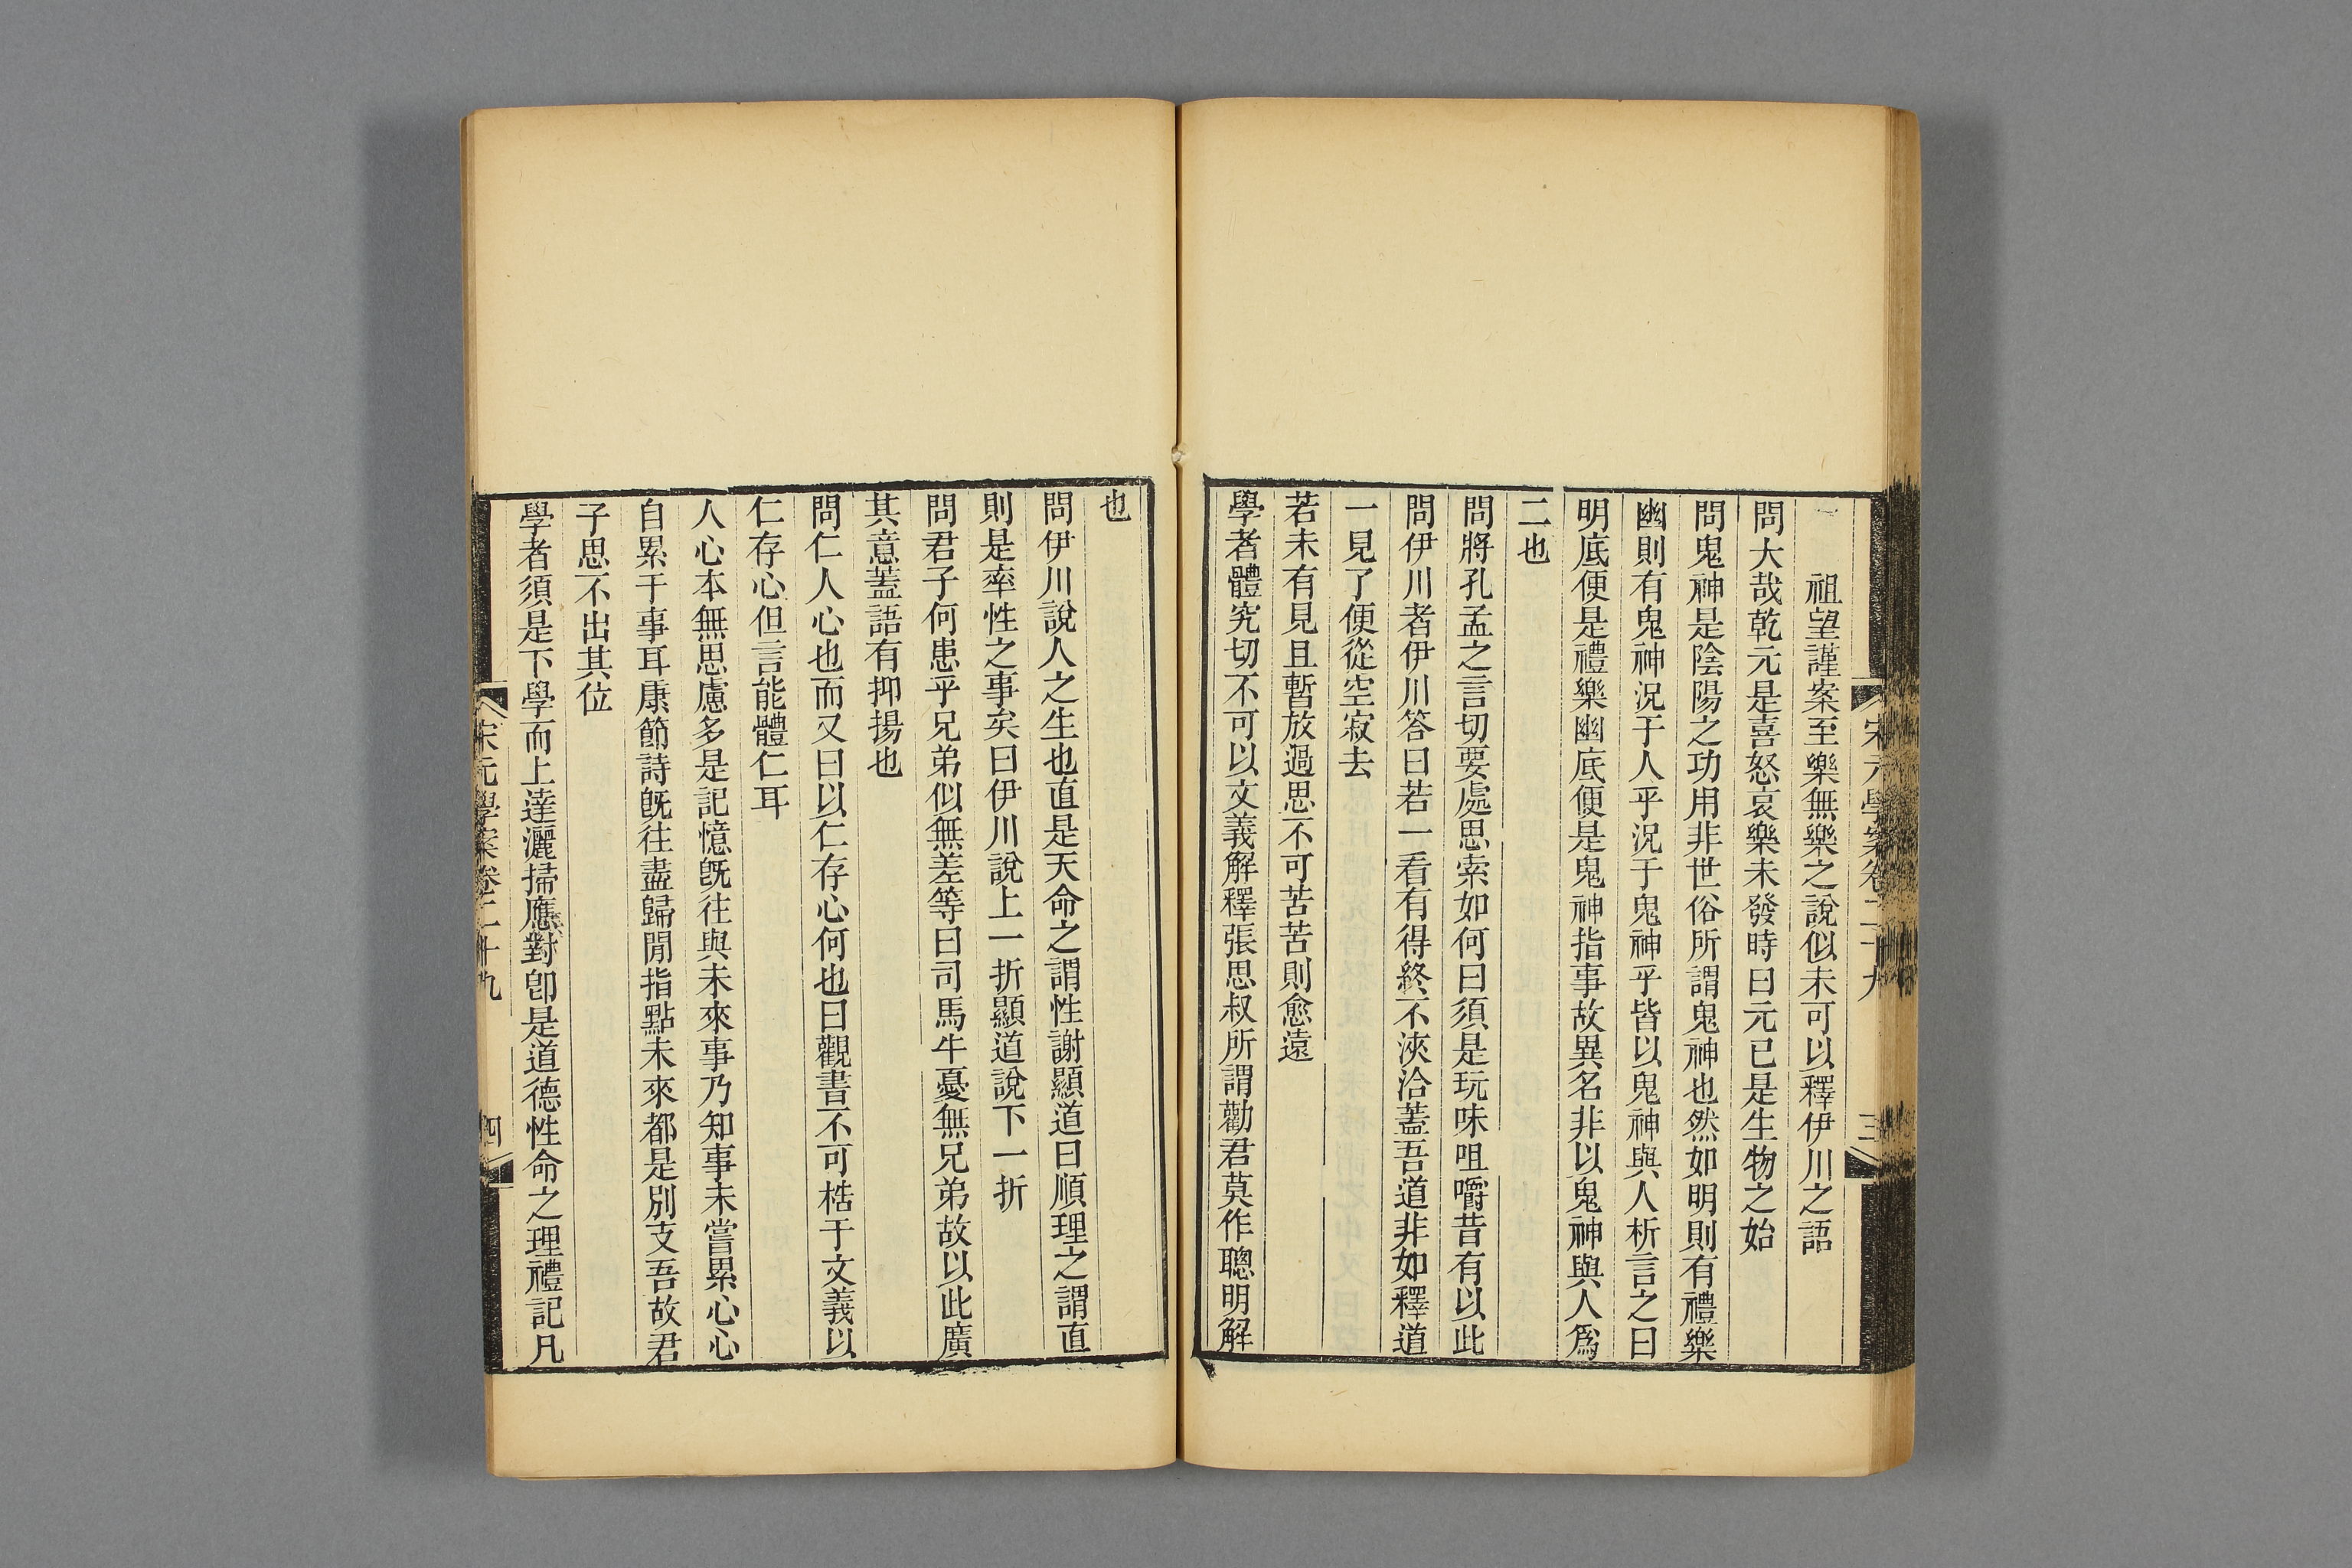 宋元學案卷二十九
三
祖望謹案至樂無樂之說似未可以釋伊川之語
問大哉乾元是喜怒哀樂未發時曰元已是生物之始
問鬼神是陰陽之功用非世俗所謂鬼神也然如明則有禮樂
幽則有鬼神況于人乎況于鬼神乎皆以鬼神與人析言之曰
明底便是禮樂幽底便是鬼神指事故異名非以鬼神與人爲
二也
問將孔孟之言切要處思索如何曰須是玩味咀嚼昔有以此
問伊川者伊川答曰若一看有得終不浹洽蓋吾道非如釋道
一見了便從空寂去
若未有見且暫放過思不可苦苦則愈遠
學者體究切不可以文義解釋張思叔所謂勸君莫作聰明解
也
問伊川說人之生也直是天命之謂性謝顯道曰順理之謂直
則是率性之事矣曰伊川說上一折顯道說下一折
問君子何患乎兄弟似無差等曰司馬牛憂無兄弟故以此廣
其意蓋語有抑揚也
問仁人心也而又曰以仁存心何也曰觀書不可梏于文義以
仁存心但言能體仁耳
人心本無思慮多是記憶旣往與未來事乃知事未嘗累心心
自累于事耳康節詩旣往盡歸閒指點未來都是別支吾故君
子思不出其位
學者須是下學而上達灑掃應對卽是道德性命之理禮記凡
宋元學案卷二十九
四